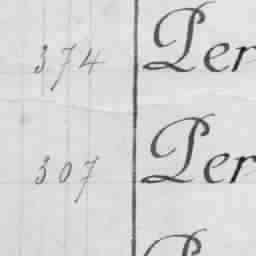 374 Per
307 Per